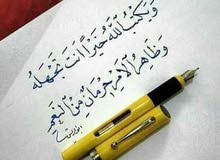 وَيَكْتُبُ اللَّهُ خَيْرًا أَنْتَ تَجْهَلُهُ
وَظَاهِرُ الْأَمْرِ حِرْمَانٌ مِنَ النِّعَمِ